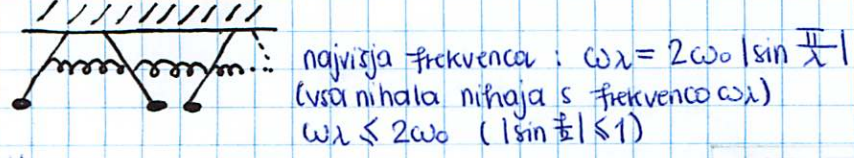 najvišja frekvenca : ωλ = 2ω₀ |sin π/λ|
(vsa nihala nihajo s frekvenco ωλ)
ωλ ≤ 2ω₀ (|sin φ/2| ≤ 1)